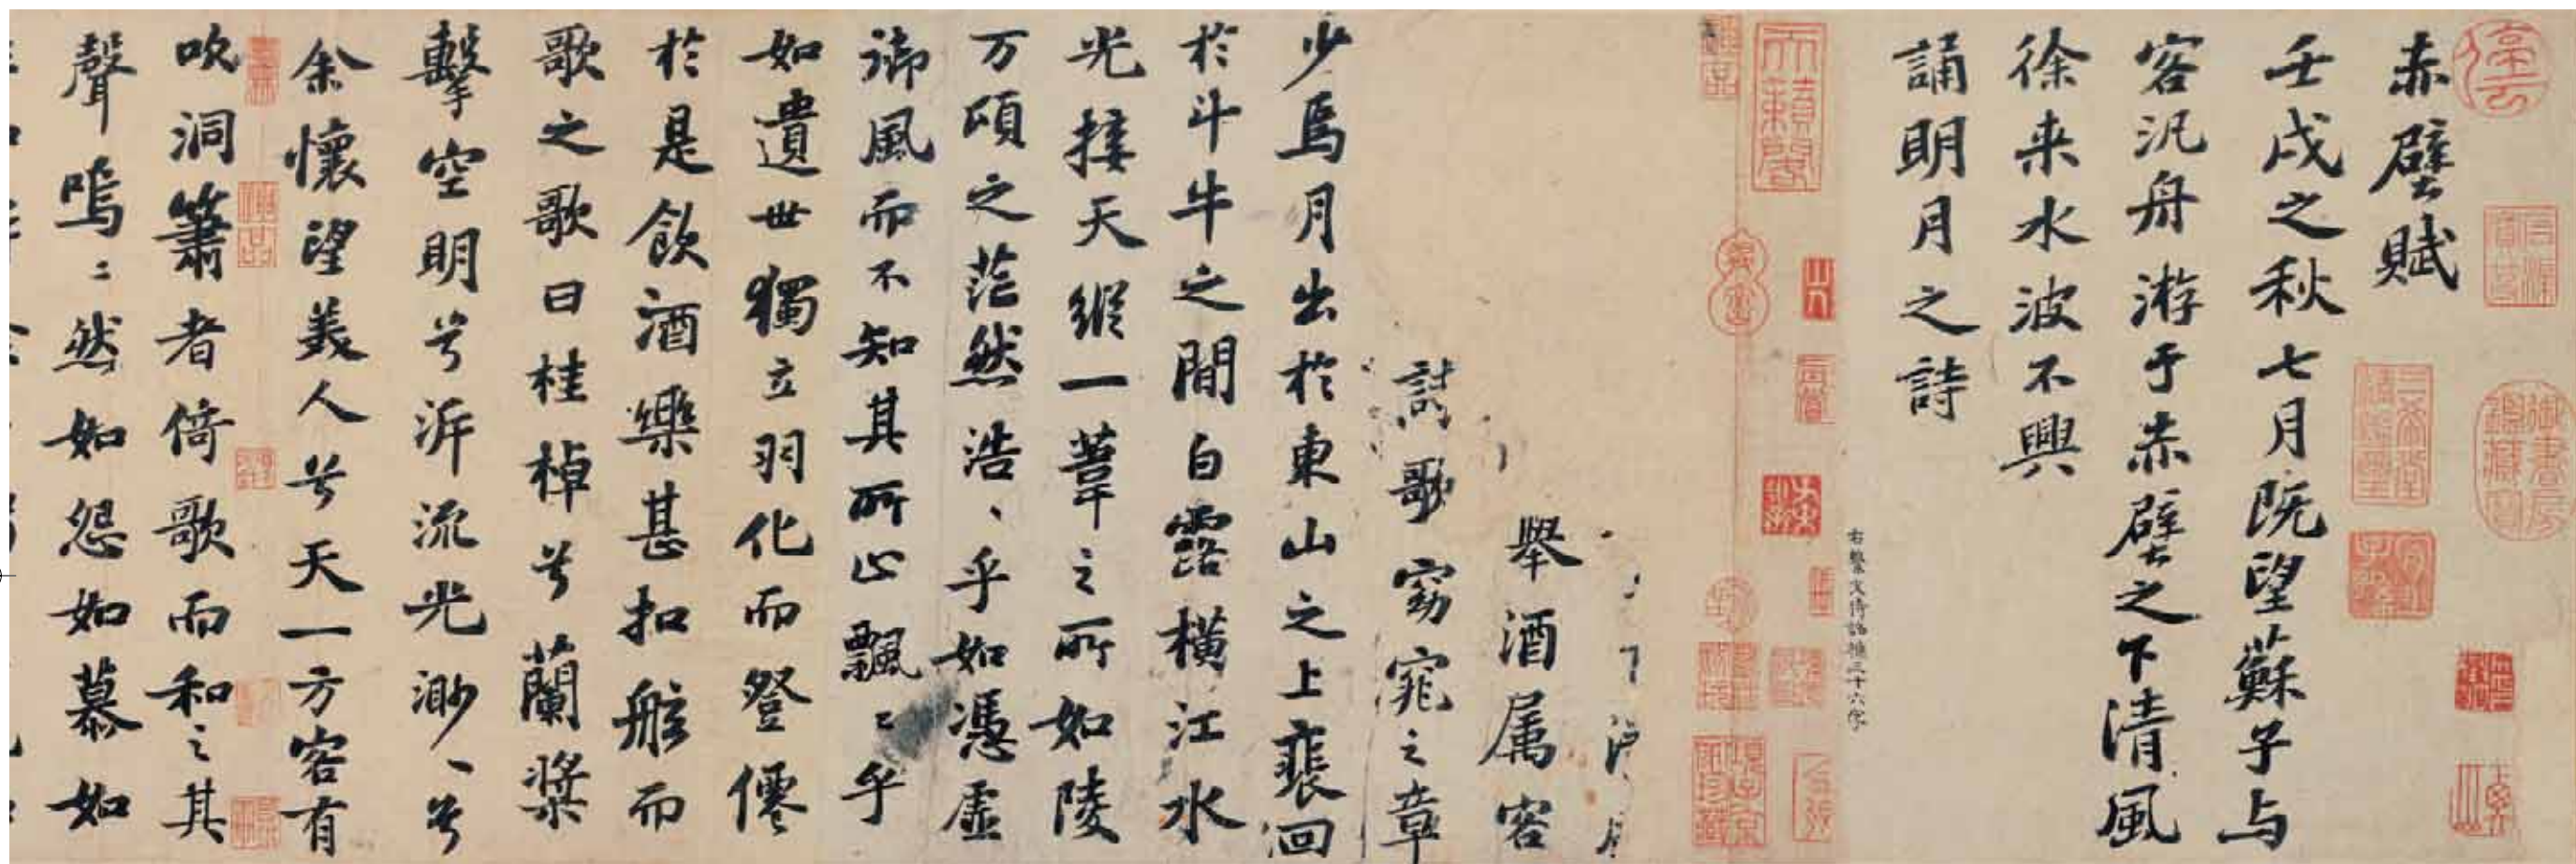 赤壁賦
壬戌之秋七月既望蘇子与
客汎舟游于赤壁之下清風
徐来水波不興
誦明月之詩
右繫文待詔補三十六字
舉酒属客
歌窈窕之章
少焉月出於東山之上裴回
於斗牛之間白露橫江水
光接天縱一葦之所如陵
万頃之茫然浩、乎如馮虛
御風而不知其所止飄〻乎
如遺世獨立羽化而登僊
於是飲酒樂甚扣舷而
歌之歌曰桂棹兮蘭槳
擊空明兮泝流光渺、兮
余懷望美人兮天一方客有
吹洞簫者倚歌而和之其
聲嗚〻然如怨如慕如
天籟閣